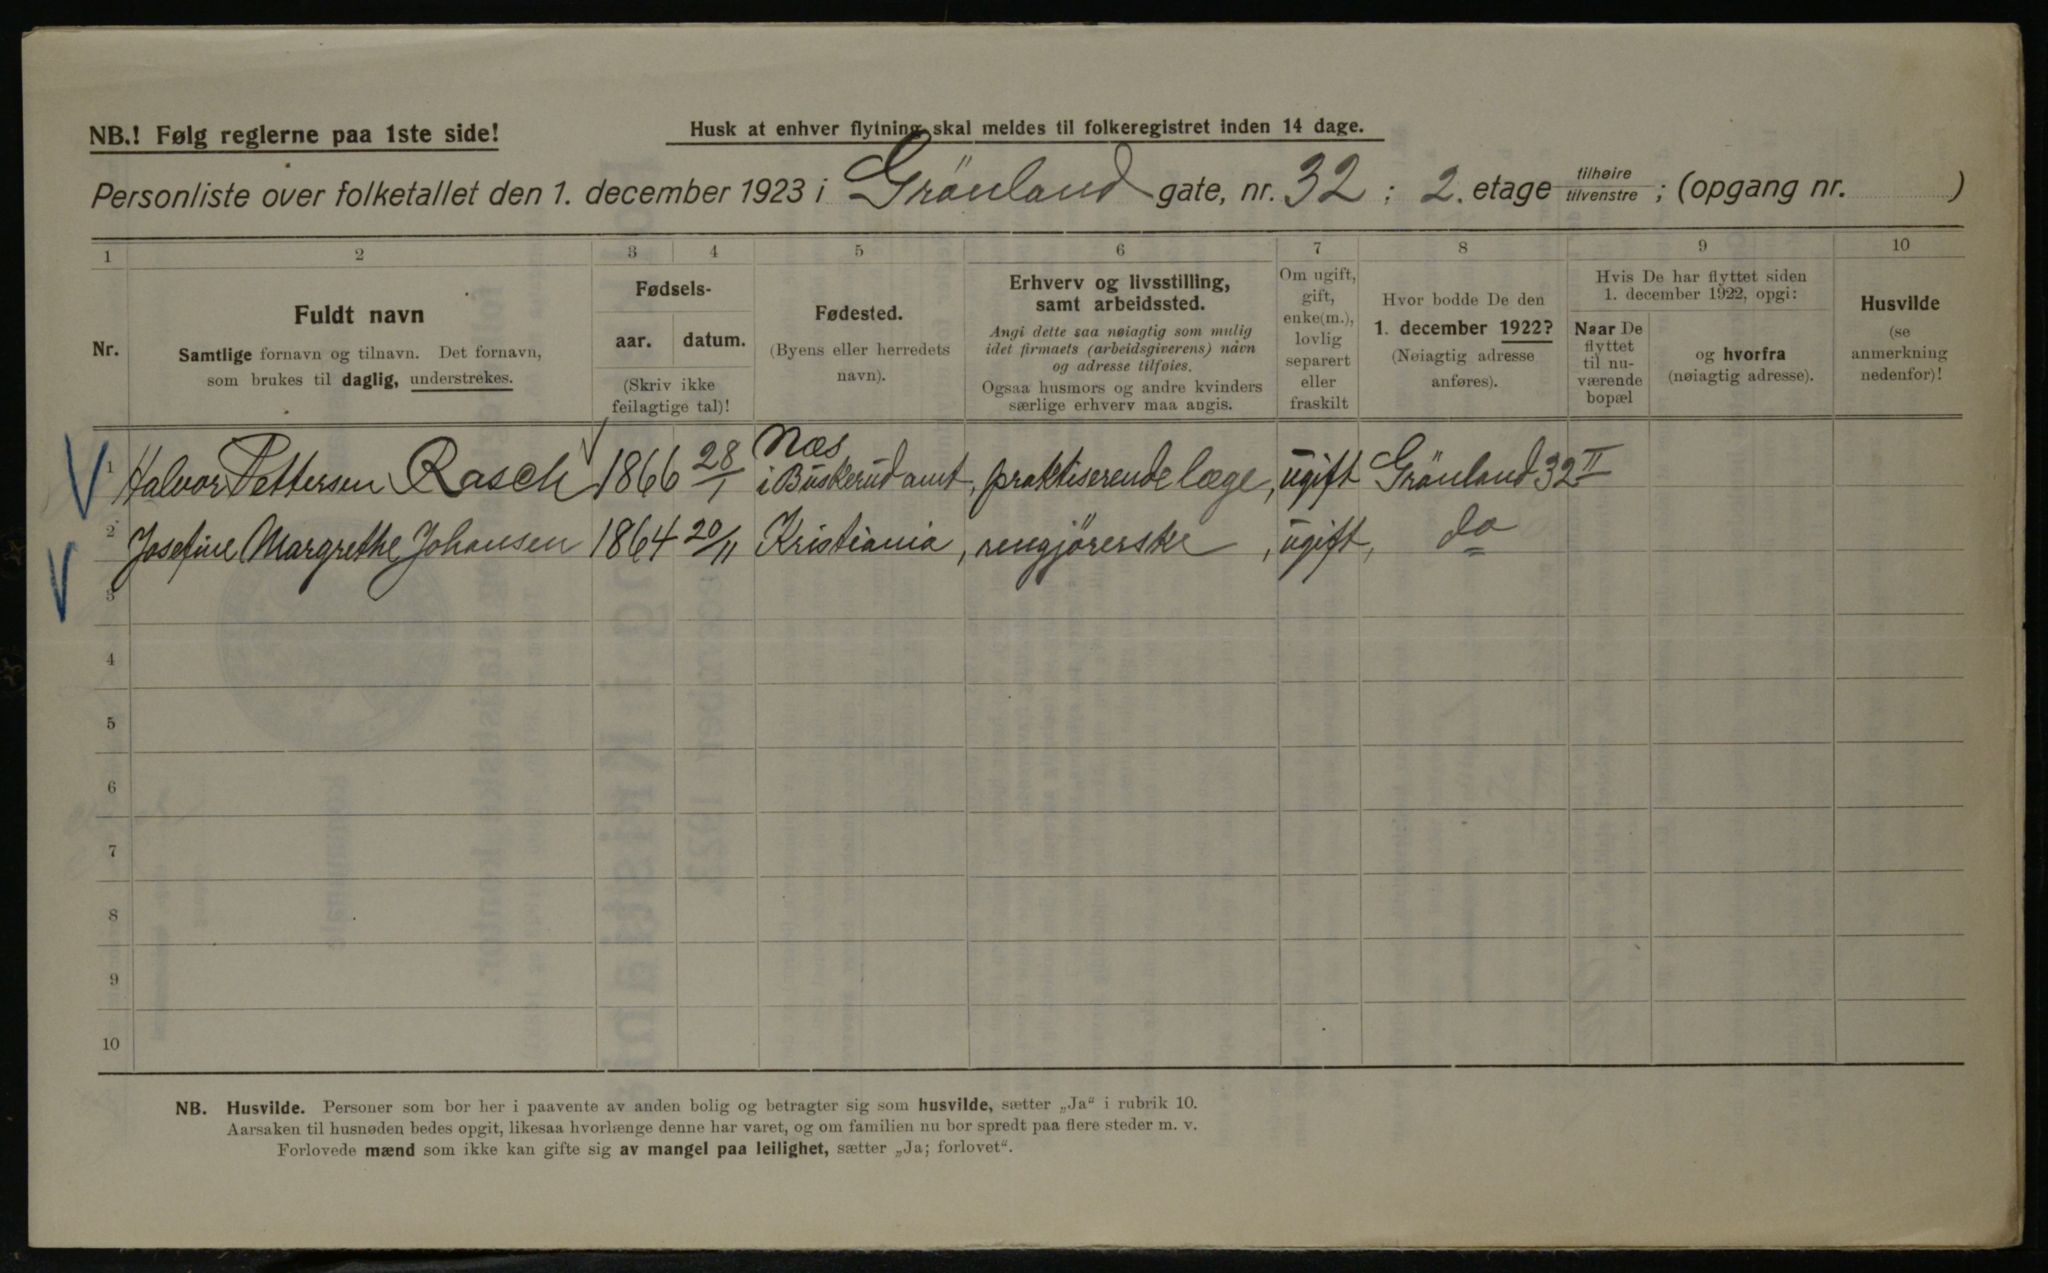 NB.! Følg reglerne paa 1ste side!
Husk at enhver flytning skal meldes til folkeregistret inden 14 dage.
Personliste over folketallet den 1. december 1923 i Grönland gate, nr. 32 ; 2. etage tilhøire tilvenstre ; (opgang nr. )
1 2 3 4 5 6 7 8 9 10
Nr.
Fuldt navn
Samtlige fornavn og tilnavn. Det fornavn,
som brukes til daglig, understrekes.
Fødsels-
aar. datum.
(Skriv ikke
feilagtige tal)!
Fødested.
(Byens eller herredets
navn).
Erhverv og livsstilling,
samt arbeidssted.
Angi dette saa nøiagtig som mulig
idet firmaets (arbeidsgiverens) navn
og adresse tilføies.
Ogsaa husmors og andre kvinders
særlige erhverv maa angis.
Om ugift,
gift,
enke(m.),
lovlig
separert
eller
fraskilt
Hvor bodde De den
1. december 1922?
(Nøiagtig adresse
anføres).
Hvis De har flyttet siden
1. december 1922, opgi:
Naar De
flyttet
til nu-
værende
bopæl
og hvorfra
(nøiagtig adresse).
Husvilde
(se
anmerkning
nedenfor)!
1 Halvor Pettersen Rasch 1866 28/1 Næs i Buskerud amt, praktiserende læge, ugift Grönland 32 II
2 Josefine Margrethe Johansen 1864 20/11 Kristiania, rengjörerske, ugift, do
3
4
5
6
7
8
9
10
NB. Husvilde. Personer som bor her i paavente av anden bolig og betragter sig som husvilde, sætter „Ja“ i rubrik 10.
Aarsaken til husnøden bedes opgit, likesaa hvorlænge denne har varet, og om familien nu bor spredt paa flere steder m. v.
Forlovede mænd som ikke kan gifte sig av mangel paa leilighet, sætter „Ja; forlovet“.